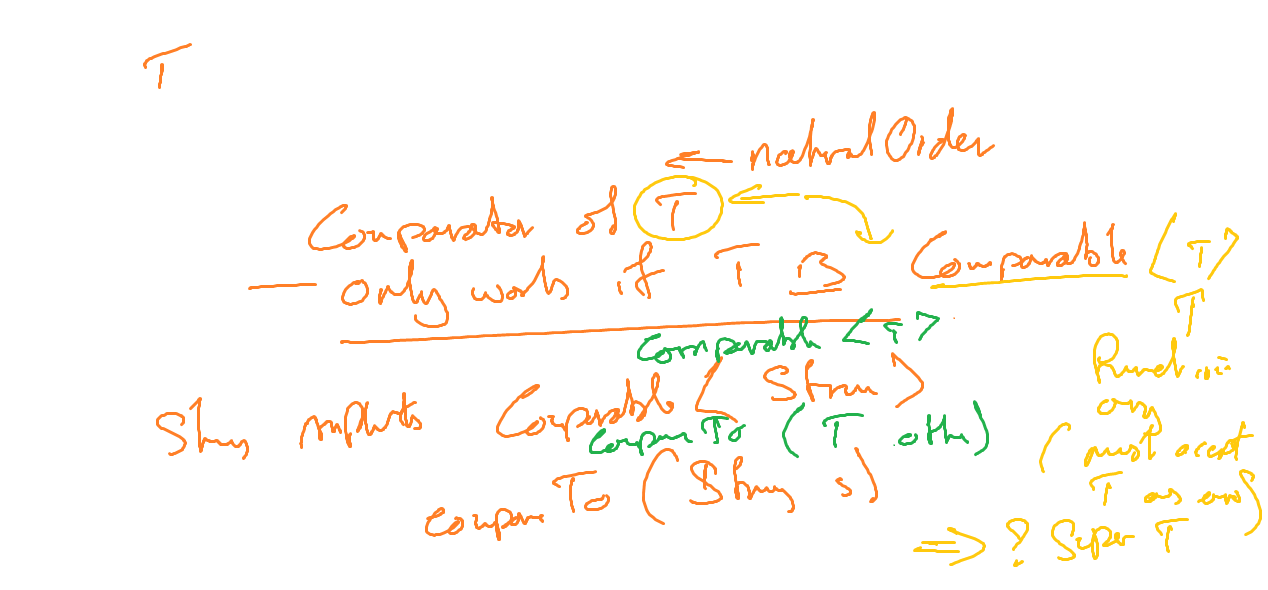 T
← naturalOrder
Comparator of T
— only works if T is Comparable <T>
T
Comparable <T>
String implements Comparable <String>
compareTo (T other)
compareTo (String s)
arg
(must accept
T as arg)
=> ? Super T